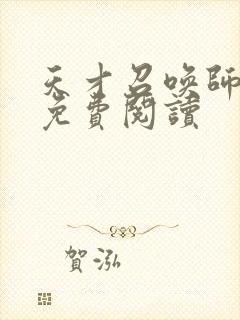 天才召喚師
免費閱讀
賀泓